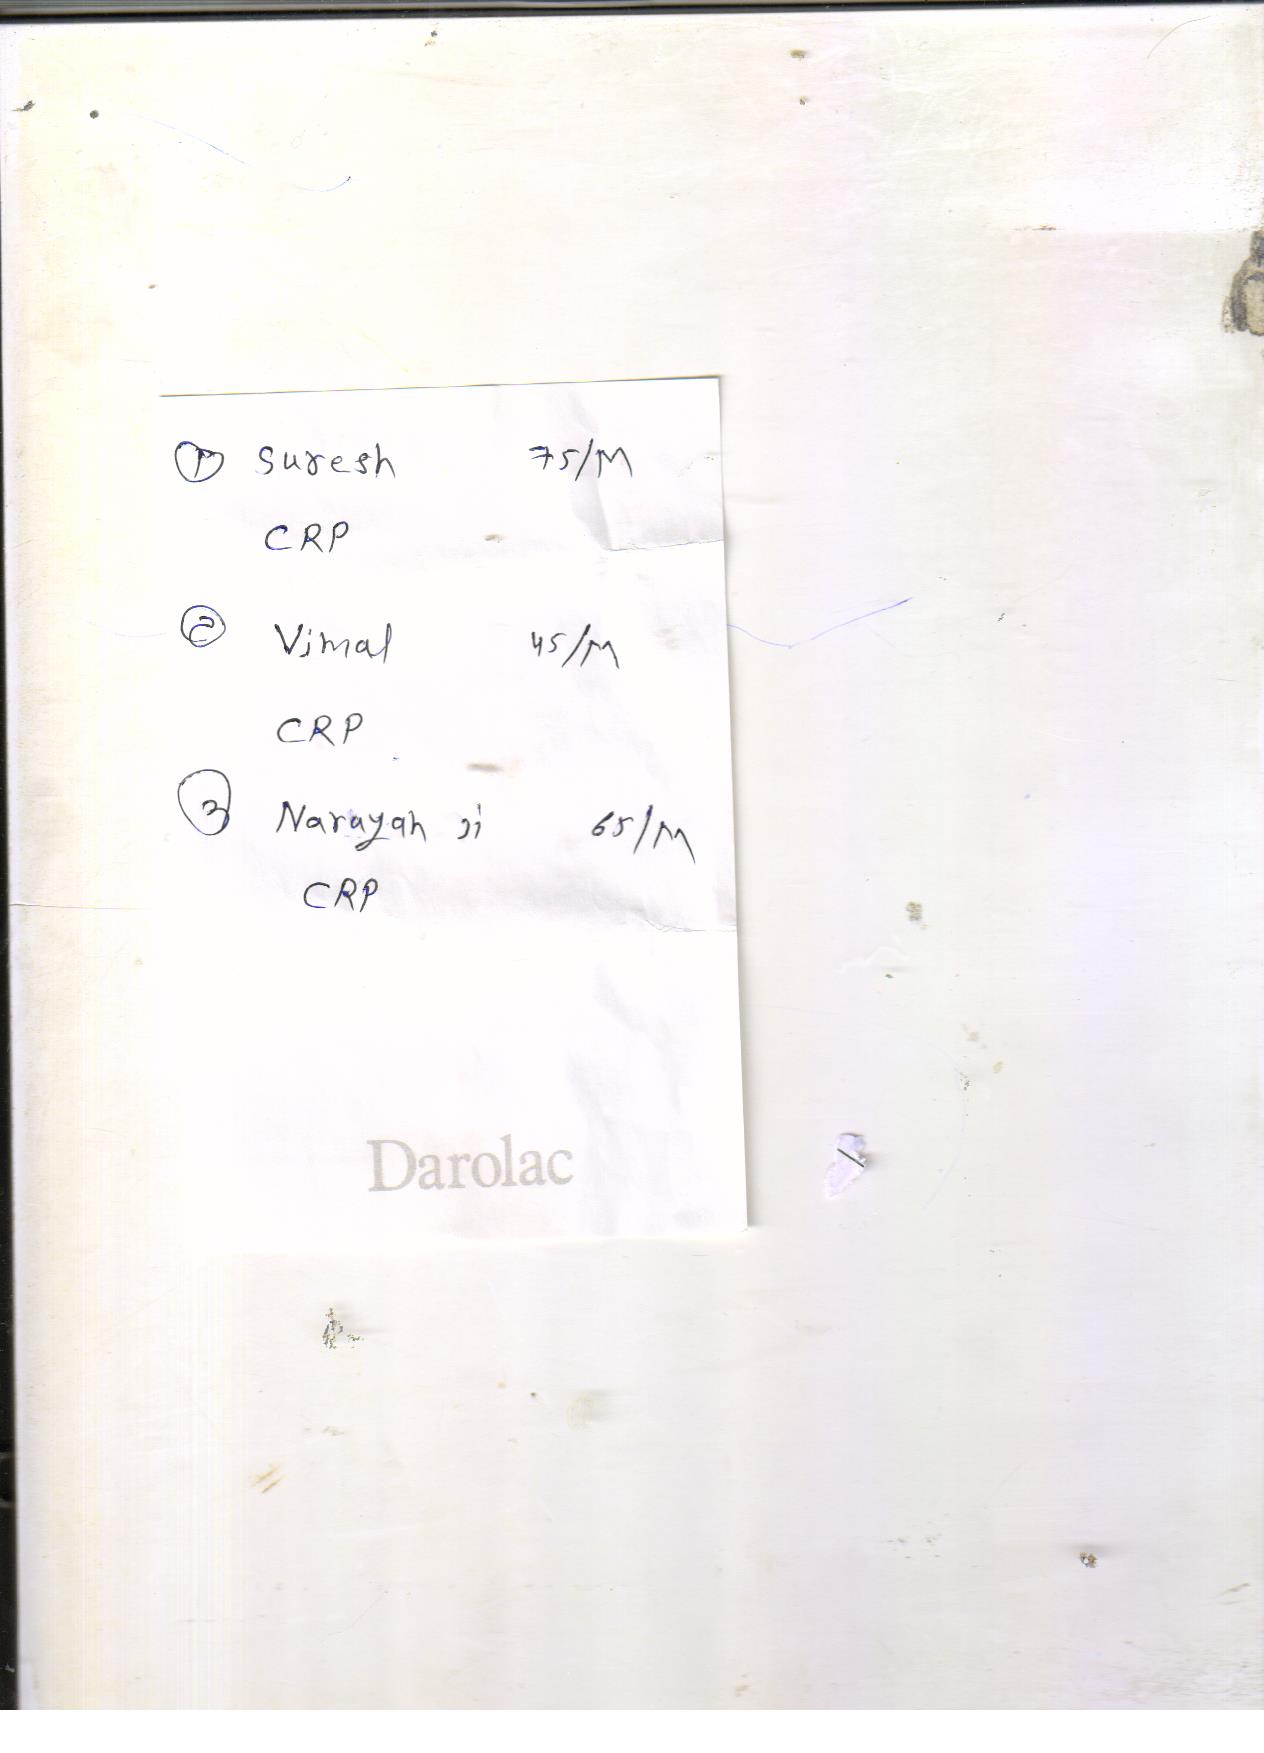 ① Suresh 75/M
CRP
② Vimal 45/M
CRP
③ Narayan ji 65/M
CRP
Darolac